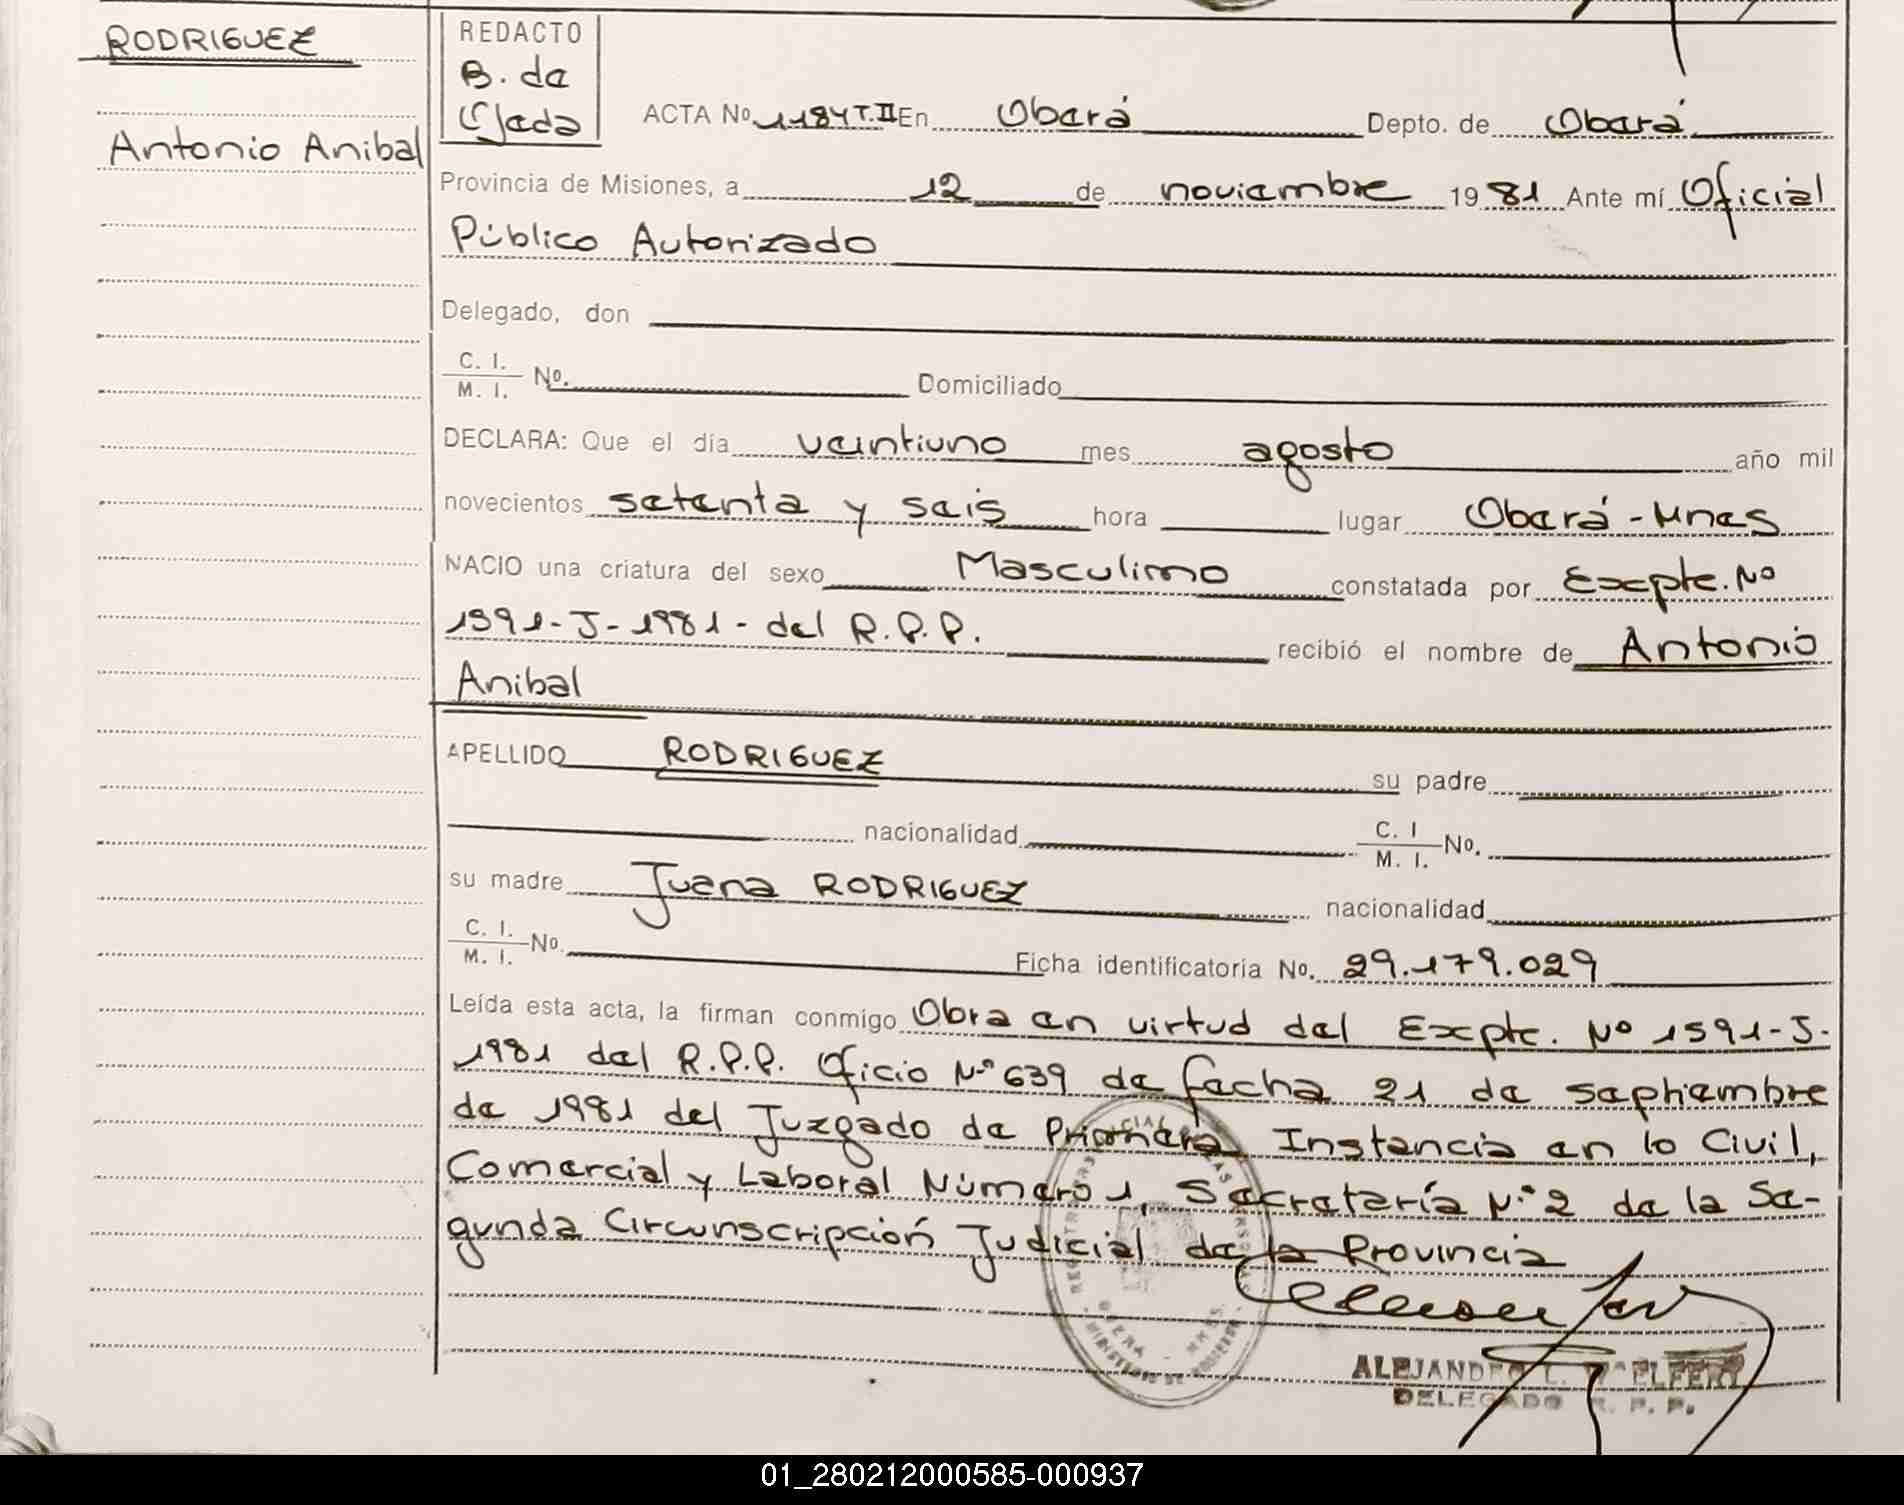 RODRIGUEZ
Antonio Anibal
REDACTO
B. de
Ojeda
ACTA Nº 1184 T.II En Oberá Depto. de Oberá
Provincia de Misiones, a 12 de noviembre 1981 Ante mí Oficial
Público Autorizado
Delegado, don
C. I.
M. I. Nº. Domiciliado
DECLARA: Que el día veintiuno mes agosto año mil
novecientos setenta y seis hora lugar Oberá - Mnes
NACIO una criatura del sexo Masculino constatada por Expte. Nº
1591-J-1981- del R.P.P. recibió el nombre de Antonio
Anibal
APELLIDO RODRIGUEZ su padre
nacionalidad C. I
M. I. Nº.
su madre Juana RODRIGUEZ nacionalidad
C. I.
M. I. Nº. Ficha identificatoria Nº. 29.179.029
Leída esta acta, la firman conmigo Obra en virtud del Expte. Nº 1591-J-
1981 del R.P.P. Oficio Nº 639 de fecha 21 de septiembre
de 1981 del Juzgado de Primera Instancia en lo Civil,
Comercial y Laboral Número 1, Secretaría Nº 2 de la Se-
gunda Circunscripción Judicial de la Provincia
OBERA - MNES
MINISTERIO DE GOBIERNO
ALEJANDRO L.
DELEGADO R. P. P.
01_280212000585-000937